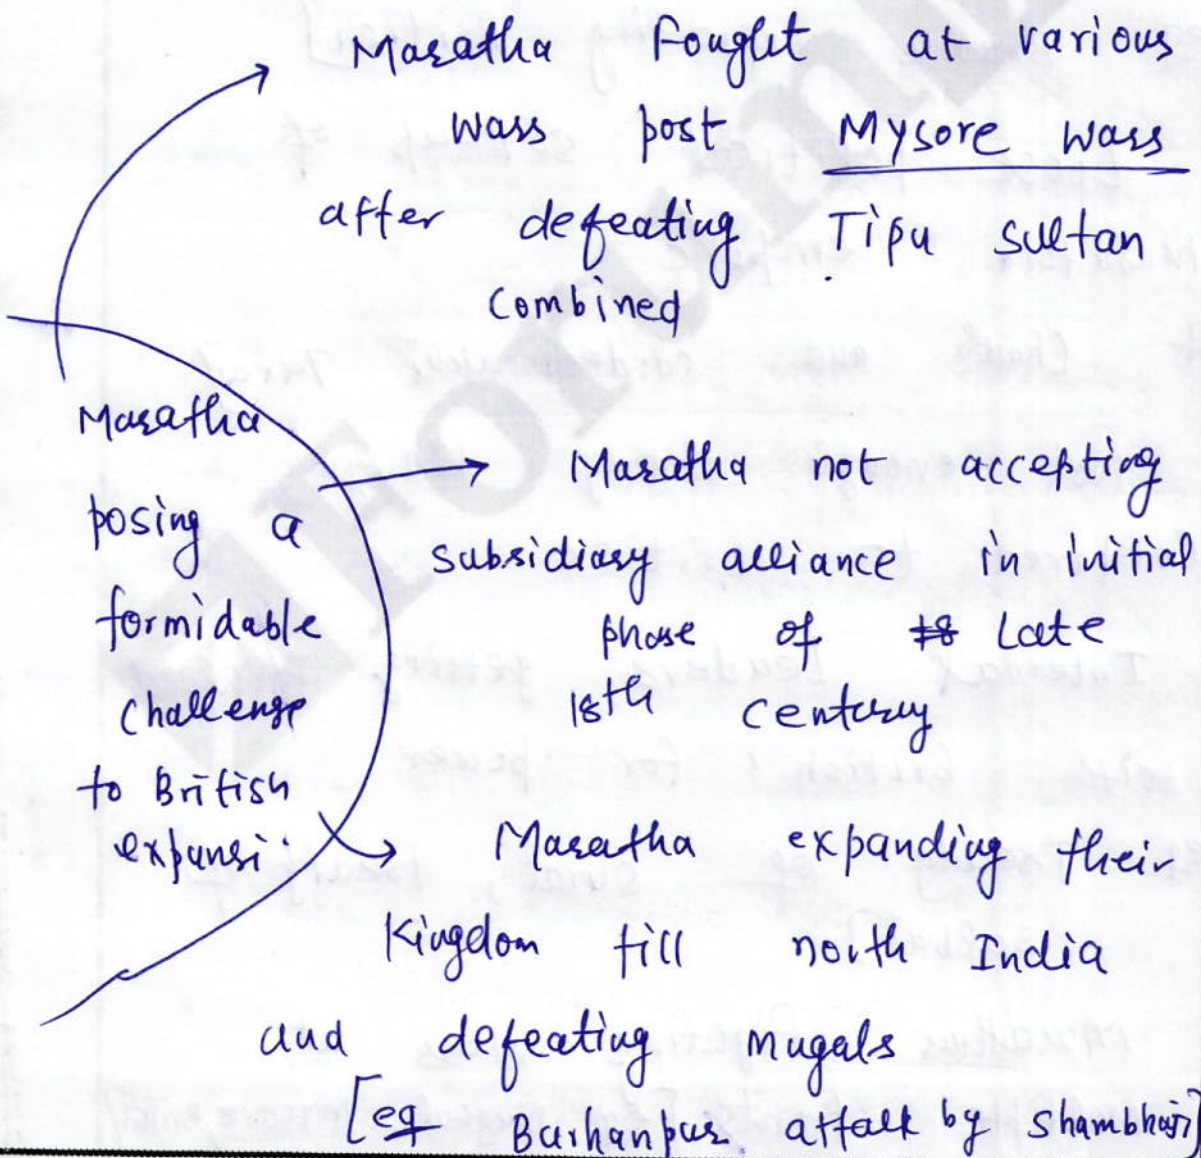 Maratha Fought at various
wars post Mysore wars
after defeating Tipu sultan
combined
Maratha
posing a
formidable
challenge
to British
expansi
Maratha not accepting
subsidiary alliance in initial
phase of 18 Late
18th century
Maratha expanding their
Kingdom till north India
and defeating mugals
[eg Burhanpur attak by Shambhaji]
Forum